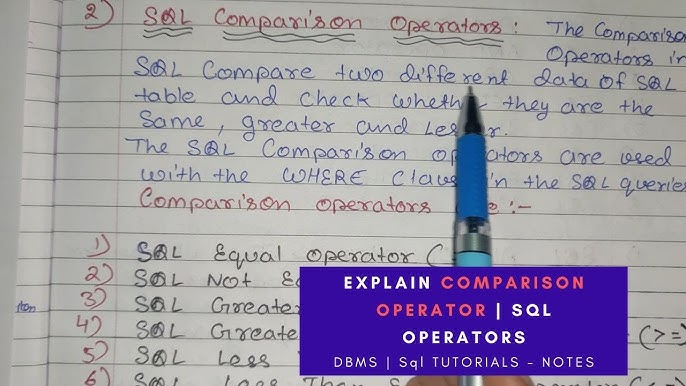 2) SQL Comparison Operators : The Comparison
Operators in
SQL Compare two different data of SQL
table and check whether they are the
Same, greater and Lesser.
The SQL Comparison operators are used
with the WHERE Clause in the SQL queries
Comparison operators :-
1) SQL Equal Operator (
2) SQL Not
3) SQL Greater
4) SQL Greate (>=)
5) SQL Less
6) SQL Less Than
EXPLAIN COMPARISON
OPERATOR | SQL
OPERATORS
DBMS | Sql TUTORIALS - NOTES